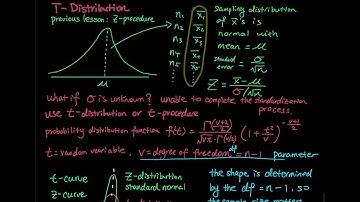 T-Distribution
previous lesson: Z-procedure
μ
n₁ x̄₁
n₂ x̄₂
n₃ x̄₃
n₄ x̄₄
n₅ x̄₅
Sampling distribution
of x̄'s is
normal with
mean = μ
standard error = σ/√n
Z = (x̄-μ)/(σ/√n)
what if σ is unknown? unable to complete the standardization
process,
use t-distribution or t-procedure
probability distribution function f(t) = Γ((ν+1)/2)/(√νπ·Γ(ν/2)) (1+t²/ν)^(-(ν+1)/2)
t=random variable, ν=degree of freedom df=n-1 parameter
t-curve
z-curve
Z-distribution
standard normal
the shape is determined
by the df=n-1, so
the sample size matters